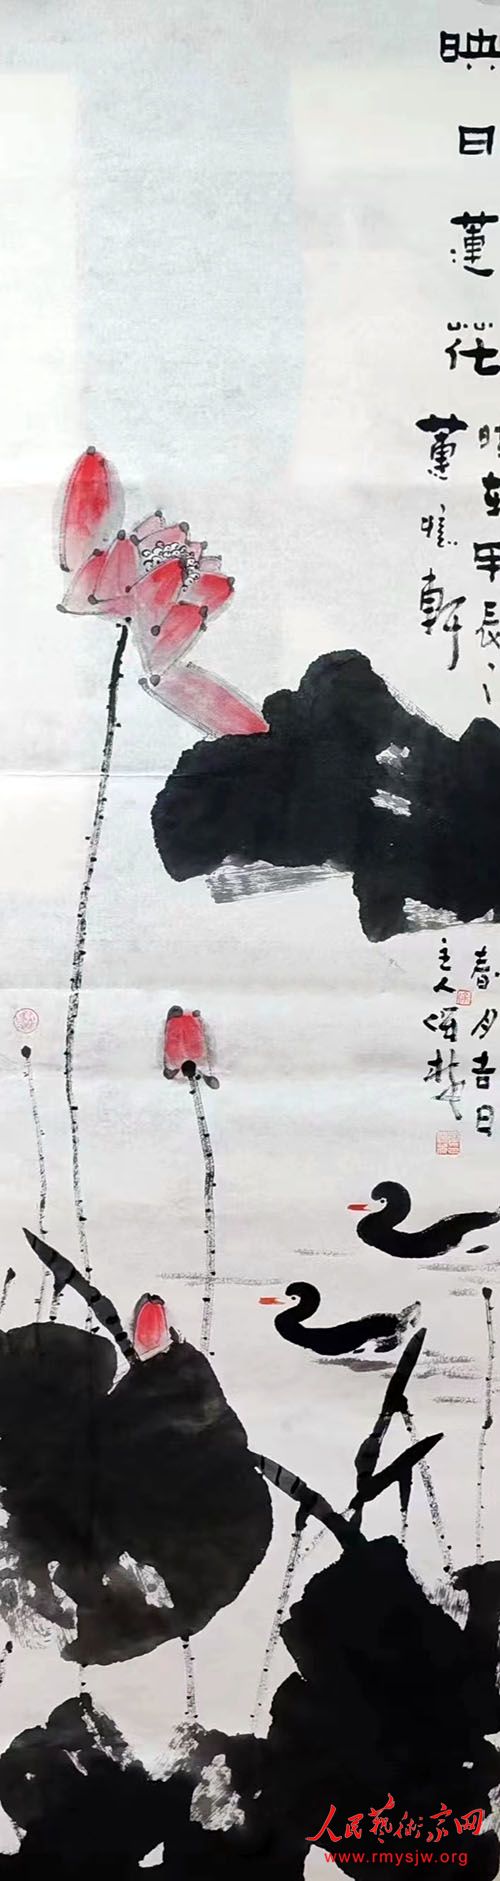 映日蓮花
時在甲辰之
春月吉日
蕙
軒
主人
人民藝術家网
www.rmysjw.org